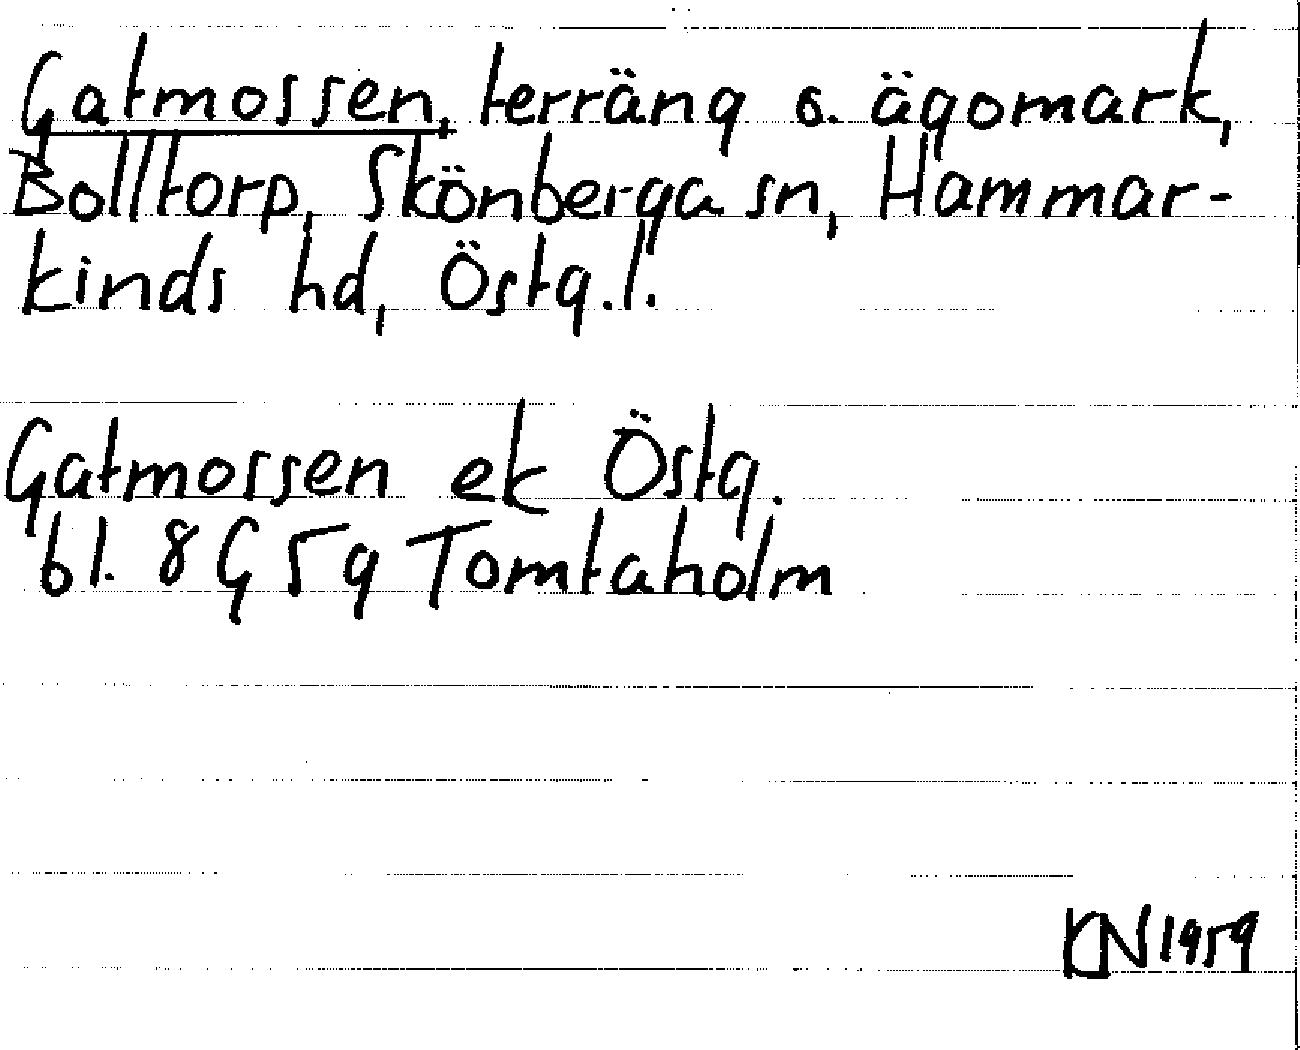 Gatmossen, terräng o. ägomark,
Bolltorp, Skönberga sn, Hammar-
kinds hd, Östg.l.
Gatmossen ek Östg.
bl. 8G 5g Tomtaholm
KN 1959